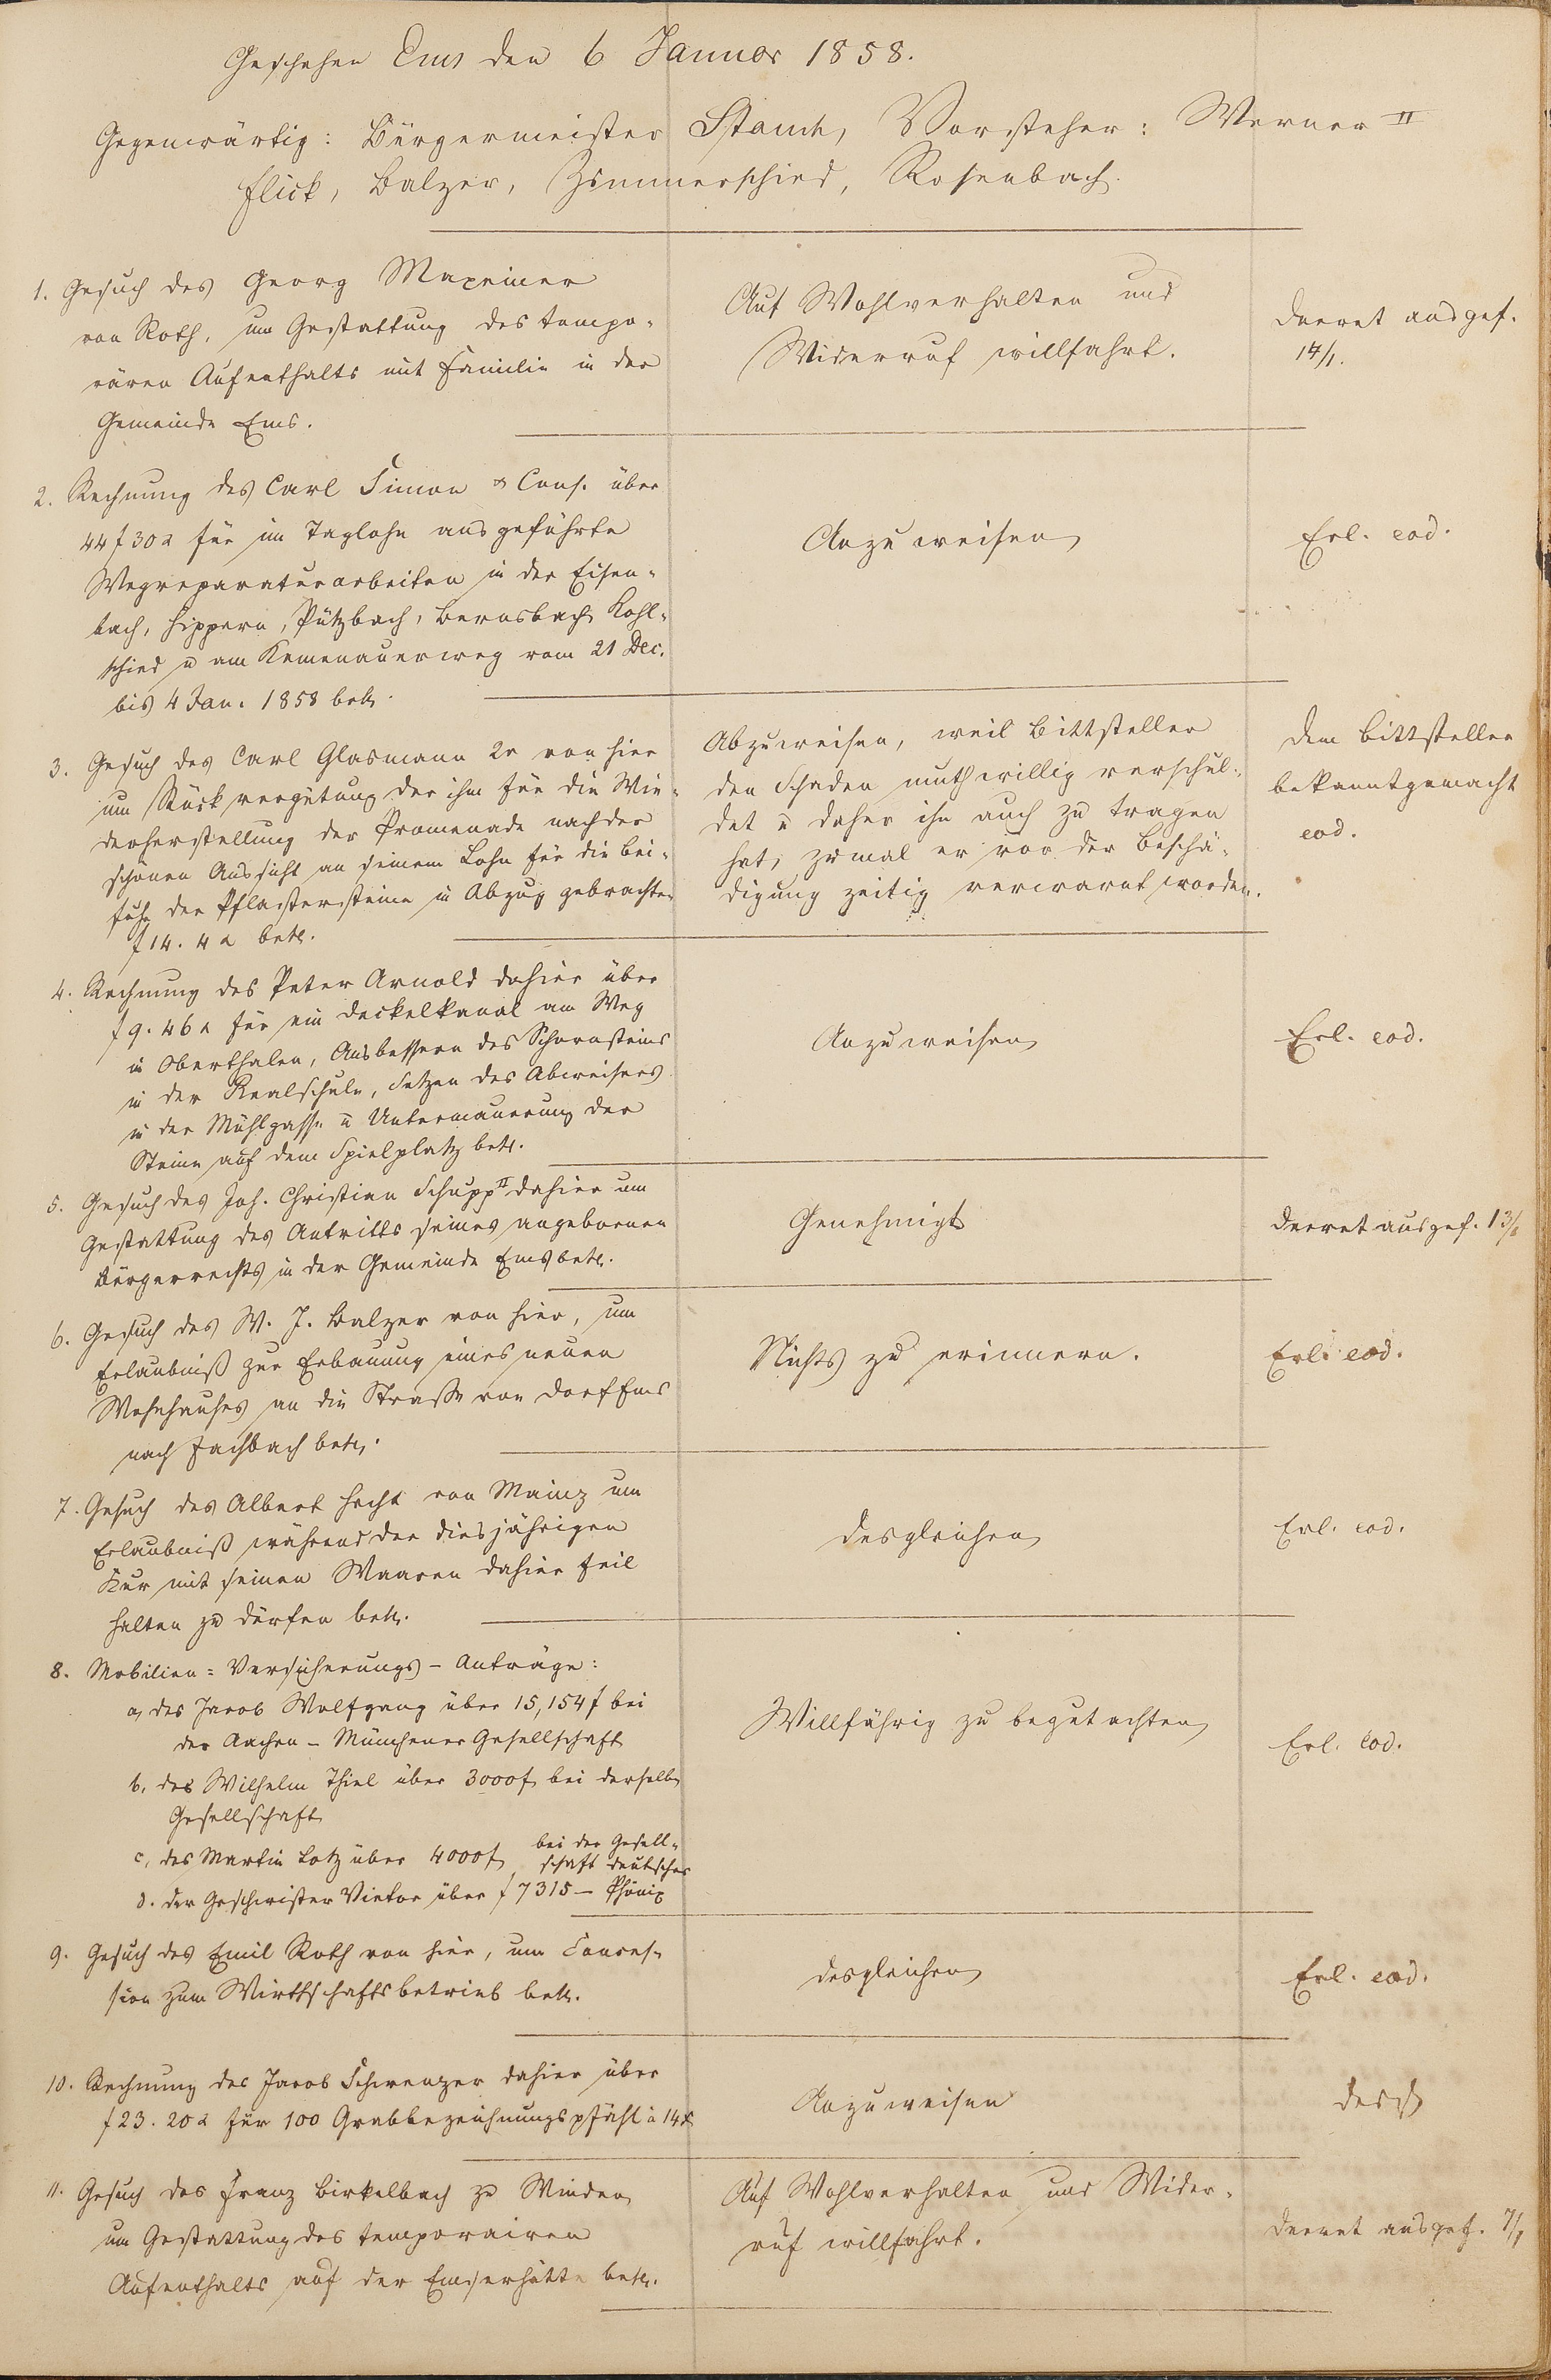 Geschehen Ems den 6 Januar 1858.
Gegenwärtig: Bürgermeister Stauch, Vorsteher: Werner II
Flick, Balzer, Zimmerschied, Rosenbach.
1. Gesuch des Georg Maxeiner
von Roth, um Gestattung des tempo-
rären Aufenthalts mit Familie in der
Gemeinde Ems.
Auf Wohlverhalten und
Widerruf willfahrt.
Decret ausgef.
14/1.
2. Rechnung des Carl Simon & Cons. über
44 f 30 x für im Taglohn ausgeführte
Wegreparaturarbeiten in der Eisen-
bach, Hippern, Pützbach, Bernsbach, Kohl-
schied u am Kemenauerweg vom 21 Dec.
bis 4 Jan. 1858 betr.
Anzuweisen
Erl. eod.
3. Gesuch des Carl Glasmann 2r von hier
um Rückvergütung der ihm für die Wie-
derherstellung der Promenade nach der
schönen Aussicht an seinem Lohn für die Bei-
fuhr der Pflastersteine in Abzug gebrachten
f 14. 4 x betr.
Abzuweisen, weil Bittsteller
den Schaden muthwillig verschul-
det u daher ihn auch zu tragen
hat, zumal er vor der Beschä-
digung zeitig verwarnt worden.
Dem Bittsteller
bekanntgemacht
eod.
4. Rechnung des Peter Arnold dahier über
f 9. 46 x für ein Deckelkanal am Weg
in Oberthalen, Ausbessern des Schornsteins
in der Realschule, Setzen des Abweisers
in der Mühlgasse u Untermauerung der
Steine auf dem Spielplatz betr.
Anzuweisen
Erl. eod.
5. Gesuch des Joh. Christian Schupp II dahier um
Gestattung des Antritts seines angebornen
Bürgerrechts in der Gemeinde Ems betr.
Genehmigt
Decret ausgef. 13/1
6. Gesuch des W. J. Balzer von hier, um
Erlaubniß zur Erbauung eines neuen
Wohnhauses an die Straße von Dorf Ems
nach Fachbach betr.
Nichts zu erinnern.
Erl. eod.
7. Gesuch des Albert Hecht von Mainz um
Erlaubniß während der diesjährigen
Kur mit seinen Waaren dahier feil
halten zu dürfen betr.
desgleichen
Erl. eod.
8. Mobilien-Versicherungs-Anträge:
a, des Jacob Wolfgang über 15,154 f bei
der Aachen-Münchener Gesellschaft
b, des Wilhelm Thiel über 3000 f bei derselben
Gesellschaft
c, des Martin Lotz über 4000 f bei der Gesell-
schaft deutscher
d. der Geschwister Vietor über f 7315 – Phönix
Willfährig zu begutachten
Erl. eod.
9. Gesuch des Emil Roth von hier, um Conces-
sion zum Wirthschaftsbetrieb betr.
desgleichen
Erl. eod.
10. Rechnung des Jacob Schwenzer dahier über
f 23. 20 x für 100 Grabbezeichnungspfähl à 14 x
Anzuweisen
desgl
11. Gesuch des Franz Birkelbach zu Winden
um Gestattung des temporairen
Aufenthalts auf der Emserhütte betr.
Auf Wohlverhalten und Wider-
ruf willfahrt.
Decret ausgef. 7/1